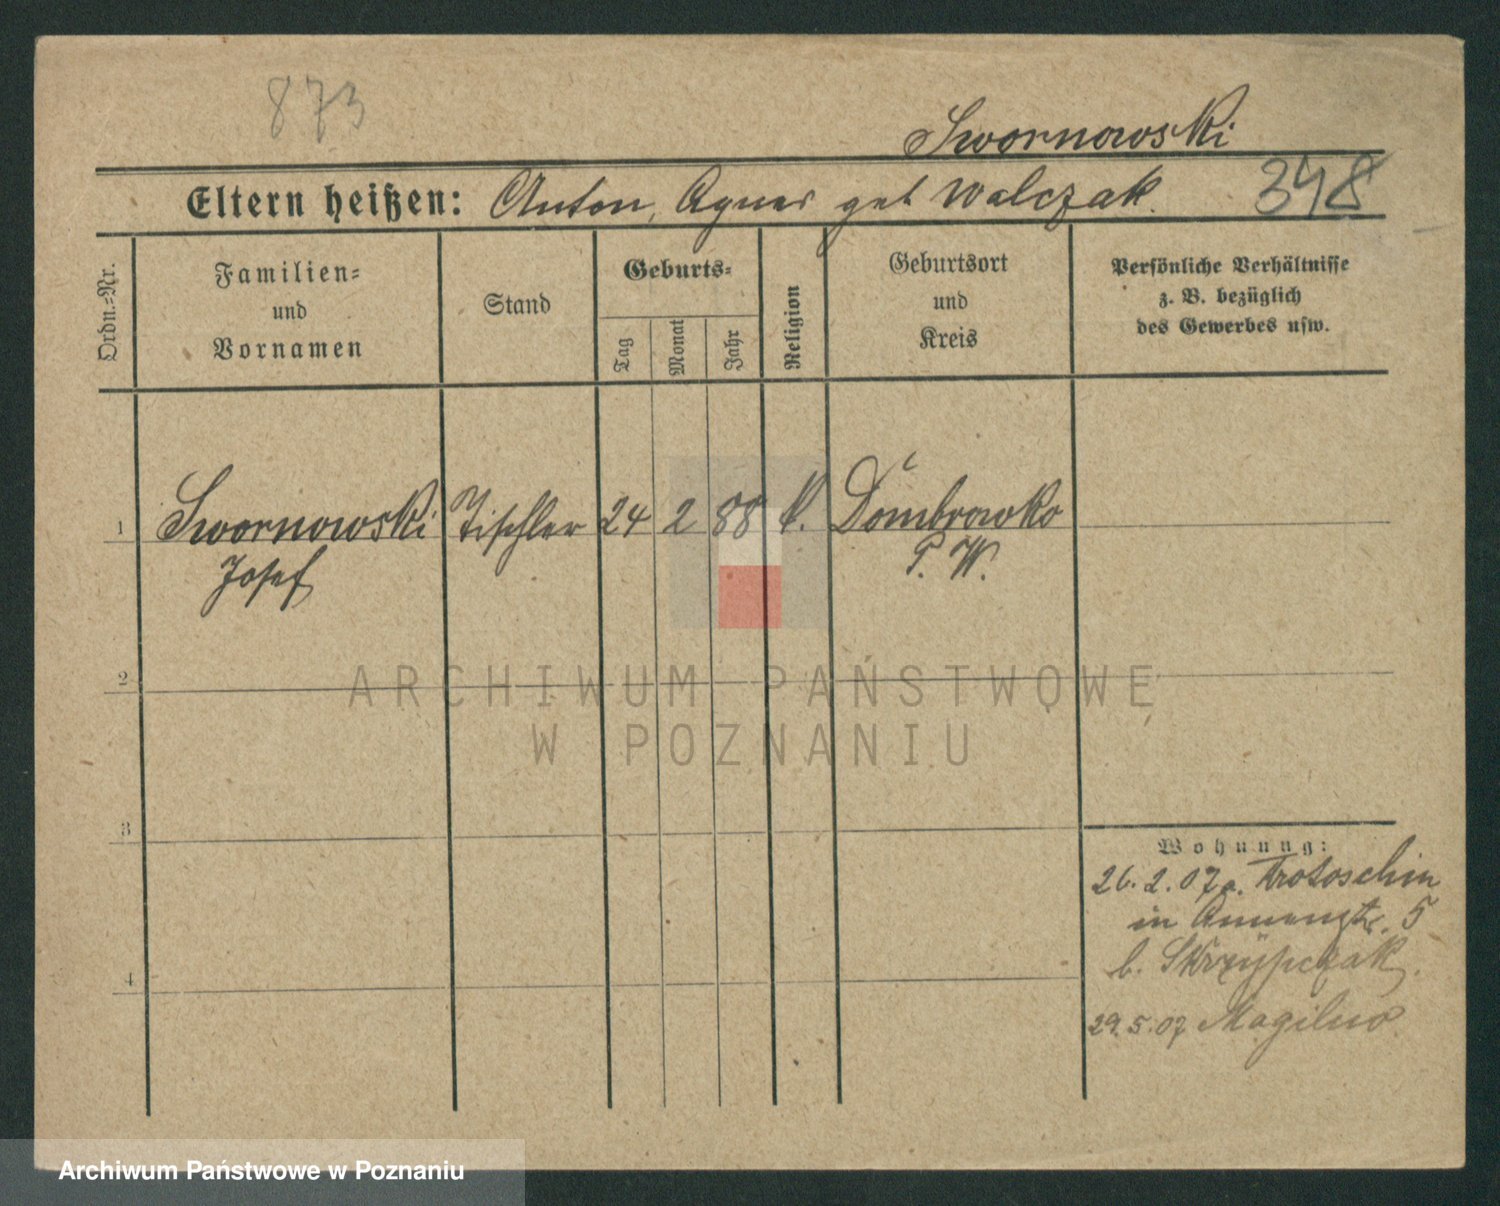 873
Swornowski
Eltern heißen: Anton, Agnes geb Walczak.
348
Ordn.=Nr.
Familien=
und
Vornamen
Stand
Geburts=
Tag
Monat
Jahr
Religion
Geburtsort
und
Kreis
Persönliche Verhältnisse
z. B. bezüglich
des Gewerbes usw.
1 Swornowski Tischler 24 2 88 k. Dombrowko
Josef P. W.
2
3
4
Wohnung:
26.2.07 a. Krotoschin
in Annenstr. 5
b. Skrzypczak.
29.5.07 Mogilno
ARCHIWUM PAŃSTWOWE
W POZNANIU
Archiwum Państwowe w Poznaniu